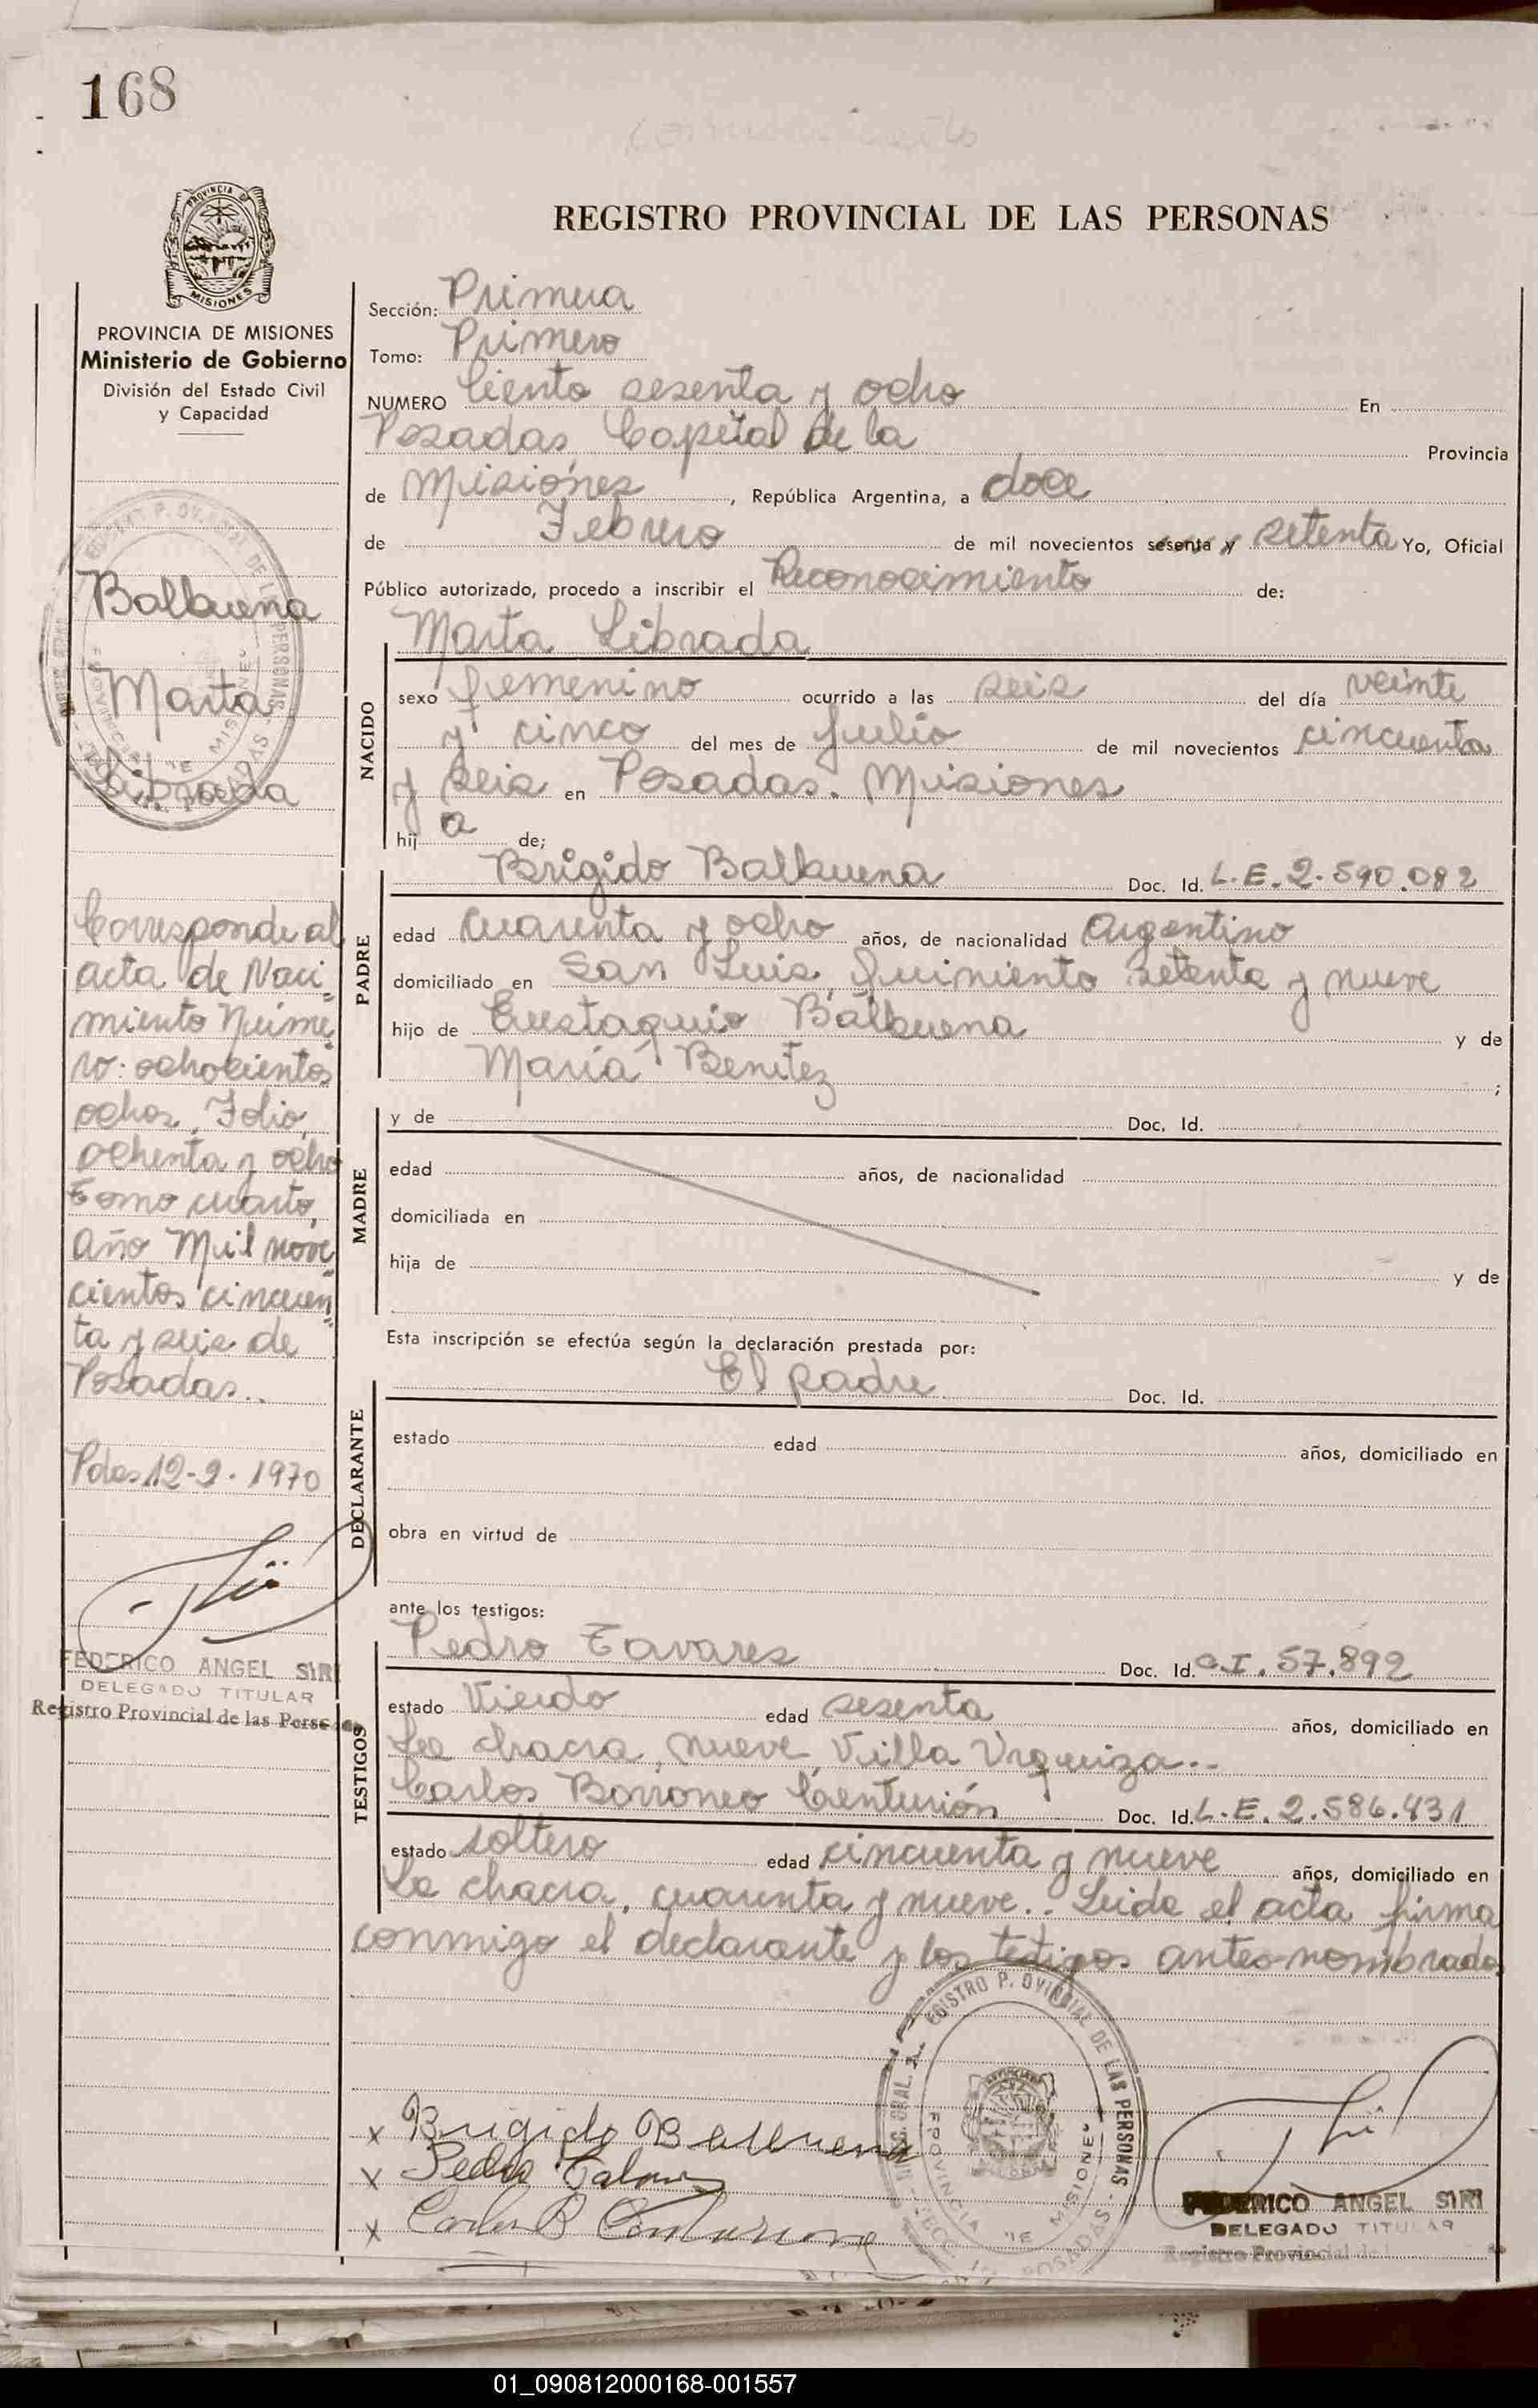 168
REGISTRO PROVINCIAL DE LAS PERSONAS
PROVINCIA DE MISIONES
Ministerio de Gobierno
División del Estado Civil
y Capacidad
Balbuena
Marta
Librada
Corresponde al
acta de Naci=
miento Núme=
ro: ochocientos
ochos, Folio,
ochenta y ocho
Tomo cuarto,
año Mil nove=
cientos cincuen=
ta y seis de
Posadas..
Pdas 12-2-1970
FEDERICO ANGEL SIRI
DELEGADO TITULAR
Registro Provincial de las Perso
Sección: Primera
Tomo: Primero
NUMERO Ciento sesenta y ocho En
Posadas, Capital de la Provincia
de Misiones, República Argentina, a doce
de Febrero de mil novecientos sesenta y setenta Yo, Oficial
Público autorizado, procedo a inscribir el Reconocimiento de:
Marta Librada
NACIDO
sexo femenino ocurrido a las seis del día veinte
y cinco del mes de Julio de mil novecientos cincuenta
y seis en Posadas. Misiones
hija de;
PADRE
Brígido Balbuena Doc. Id. L.E. 2.590.082
edad cuarenta y ocho años, de nacionalidad Argentino
domiciliado en San Luis, quiniento setenta y nueve
hijo de Eustaquio Balbuena y de
María Benitez ;
MADRE
y de Doc. Id.
edad años, de nacionalidad
domiciliada en
hija de y de
Esta inscripción se efectúa según la declaración prestada por:
DECLARANTE
El padre Doc. Id.
estado edad años, domiciliado en
obra en virtud de
ante los testigos:
TESTIGOS
Pedro Tavares Doc. Id. C.I. 57.892
estado Viudo edad sesenta años, domiciliado en
La chacra, nueve, Villa Urquiza..
Carlos Borromeo Centurión Doc. Id. L.E. 2.586.431
estado soltero edad cincuenta y nueve años, domiciliado en
La chacra, cuarenta y nueve.. Leída el acta firma
conmigo el declarante y los testigos antes nombrados
x Brigido Balbuena
x Pedro Tabares
x Carlos B Centurione
FEDERICO ANGEL SIRI
DELEGADO TITULAR
Registro Provincial de l
01_090812000168-001557